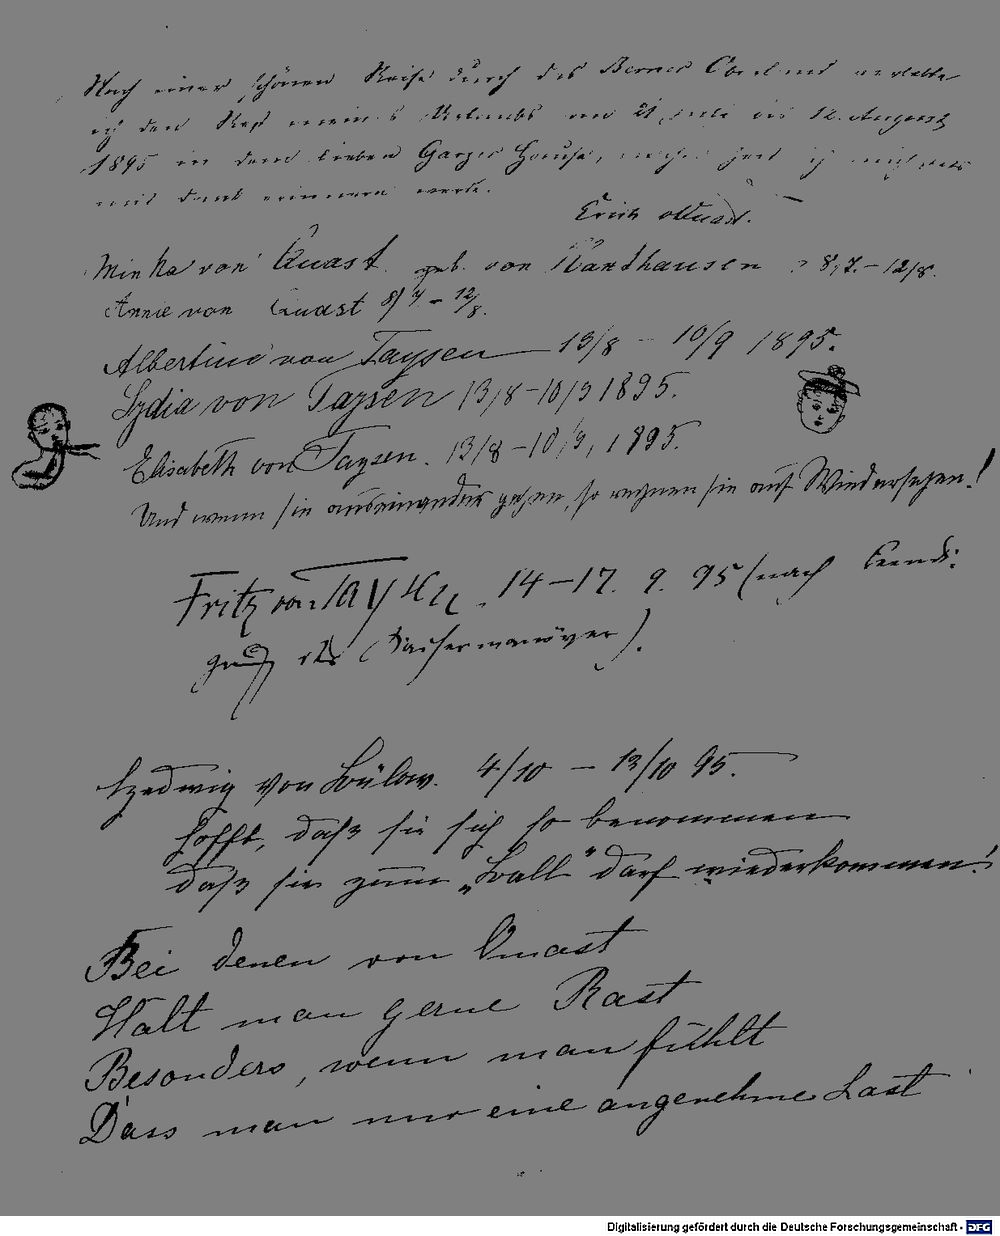 Nach einer schönen Reise durch das Berner Oberland verlebte
ich den Rest meines Urlaubs vom 21. Juli bis 12. August
1895 in dem lieben Garzer Hause, ich mich stets
mit Dank erinnern werde.
Erich vQuast.
Minka von Quast geb. von Randhausen 8/7. – 12/8.
Annie von Quast 8/7 – 12/8.
Albertine von Taysen 13/8 – 10/9 1895.
Lydia von Taysen 13/8 – 10/9 1895.
Elisabeth von Taysen. 13/8 – 10/9, 1895.
Und wenn sie auseinander gehen, so rechnen sie auf Wiedersehen!
Fritz von Taysen. 14–17. 9. 95 (nach Beendi:
gung des Kaisermanöver).
Hedwig von Bülow. 4/10 – 13/10 95.
hofft, daß sie sich so benommen
daß sie zum „Ball“ darf wiederkommen!
Bei denen von Quast
Halt man gerne Rast
Besonders, wenn man fühlt
Dass man nur eine angenehme Last
Digitalisierung gefördert durch die Deutsche Forschungsgemeinschaft - DFG